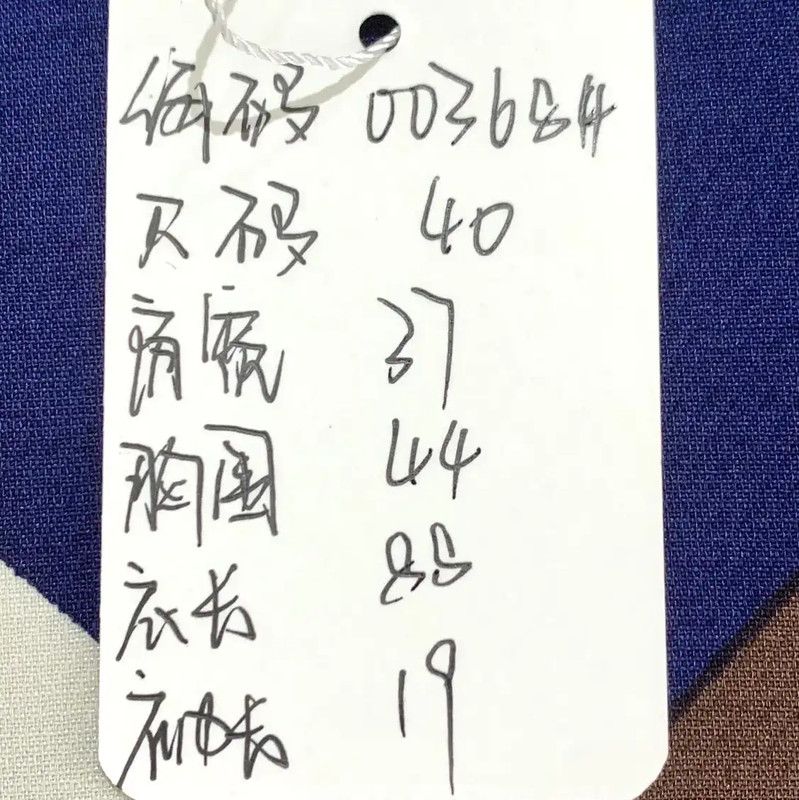 编码 003684
尺码 40
肩宽 37
胸围 44
衣长 88
袖长 19